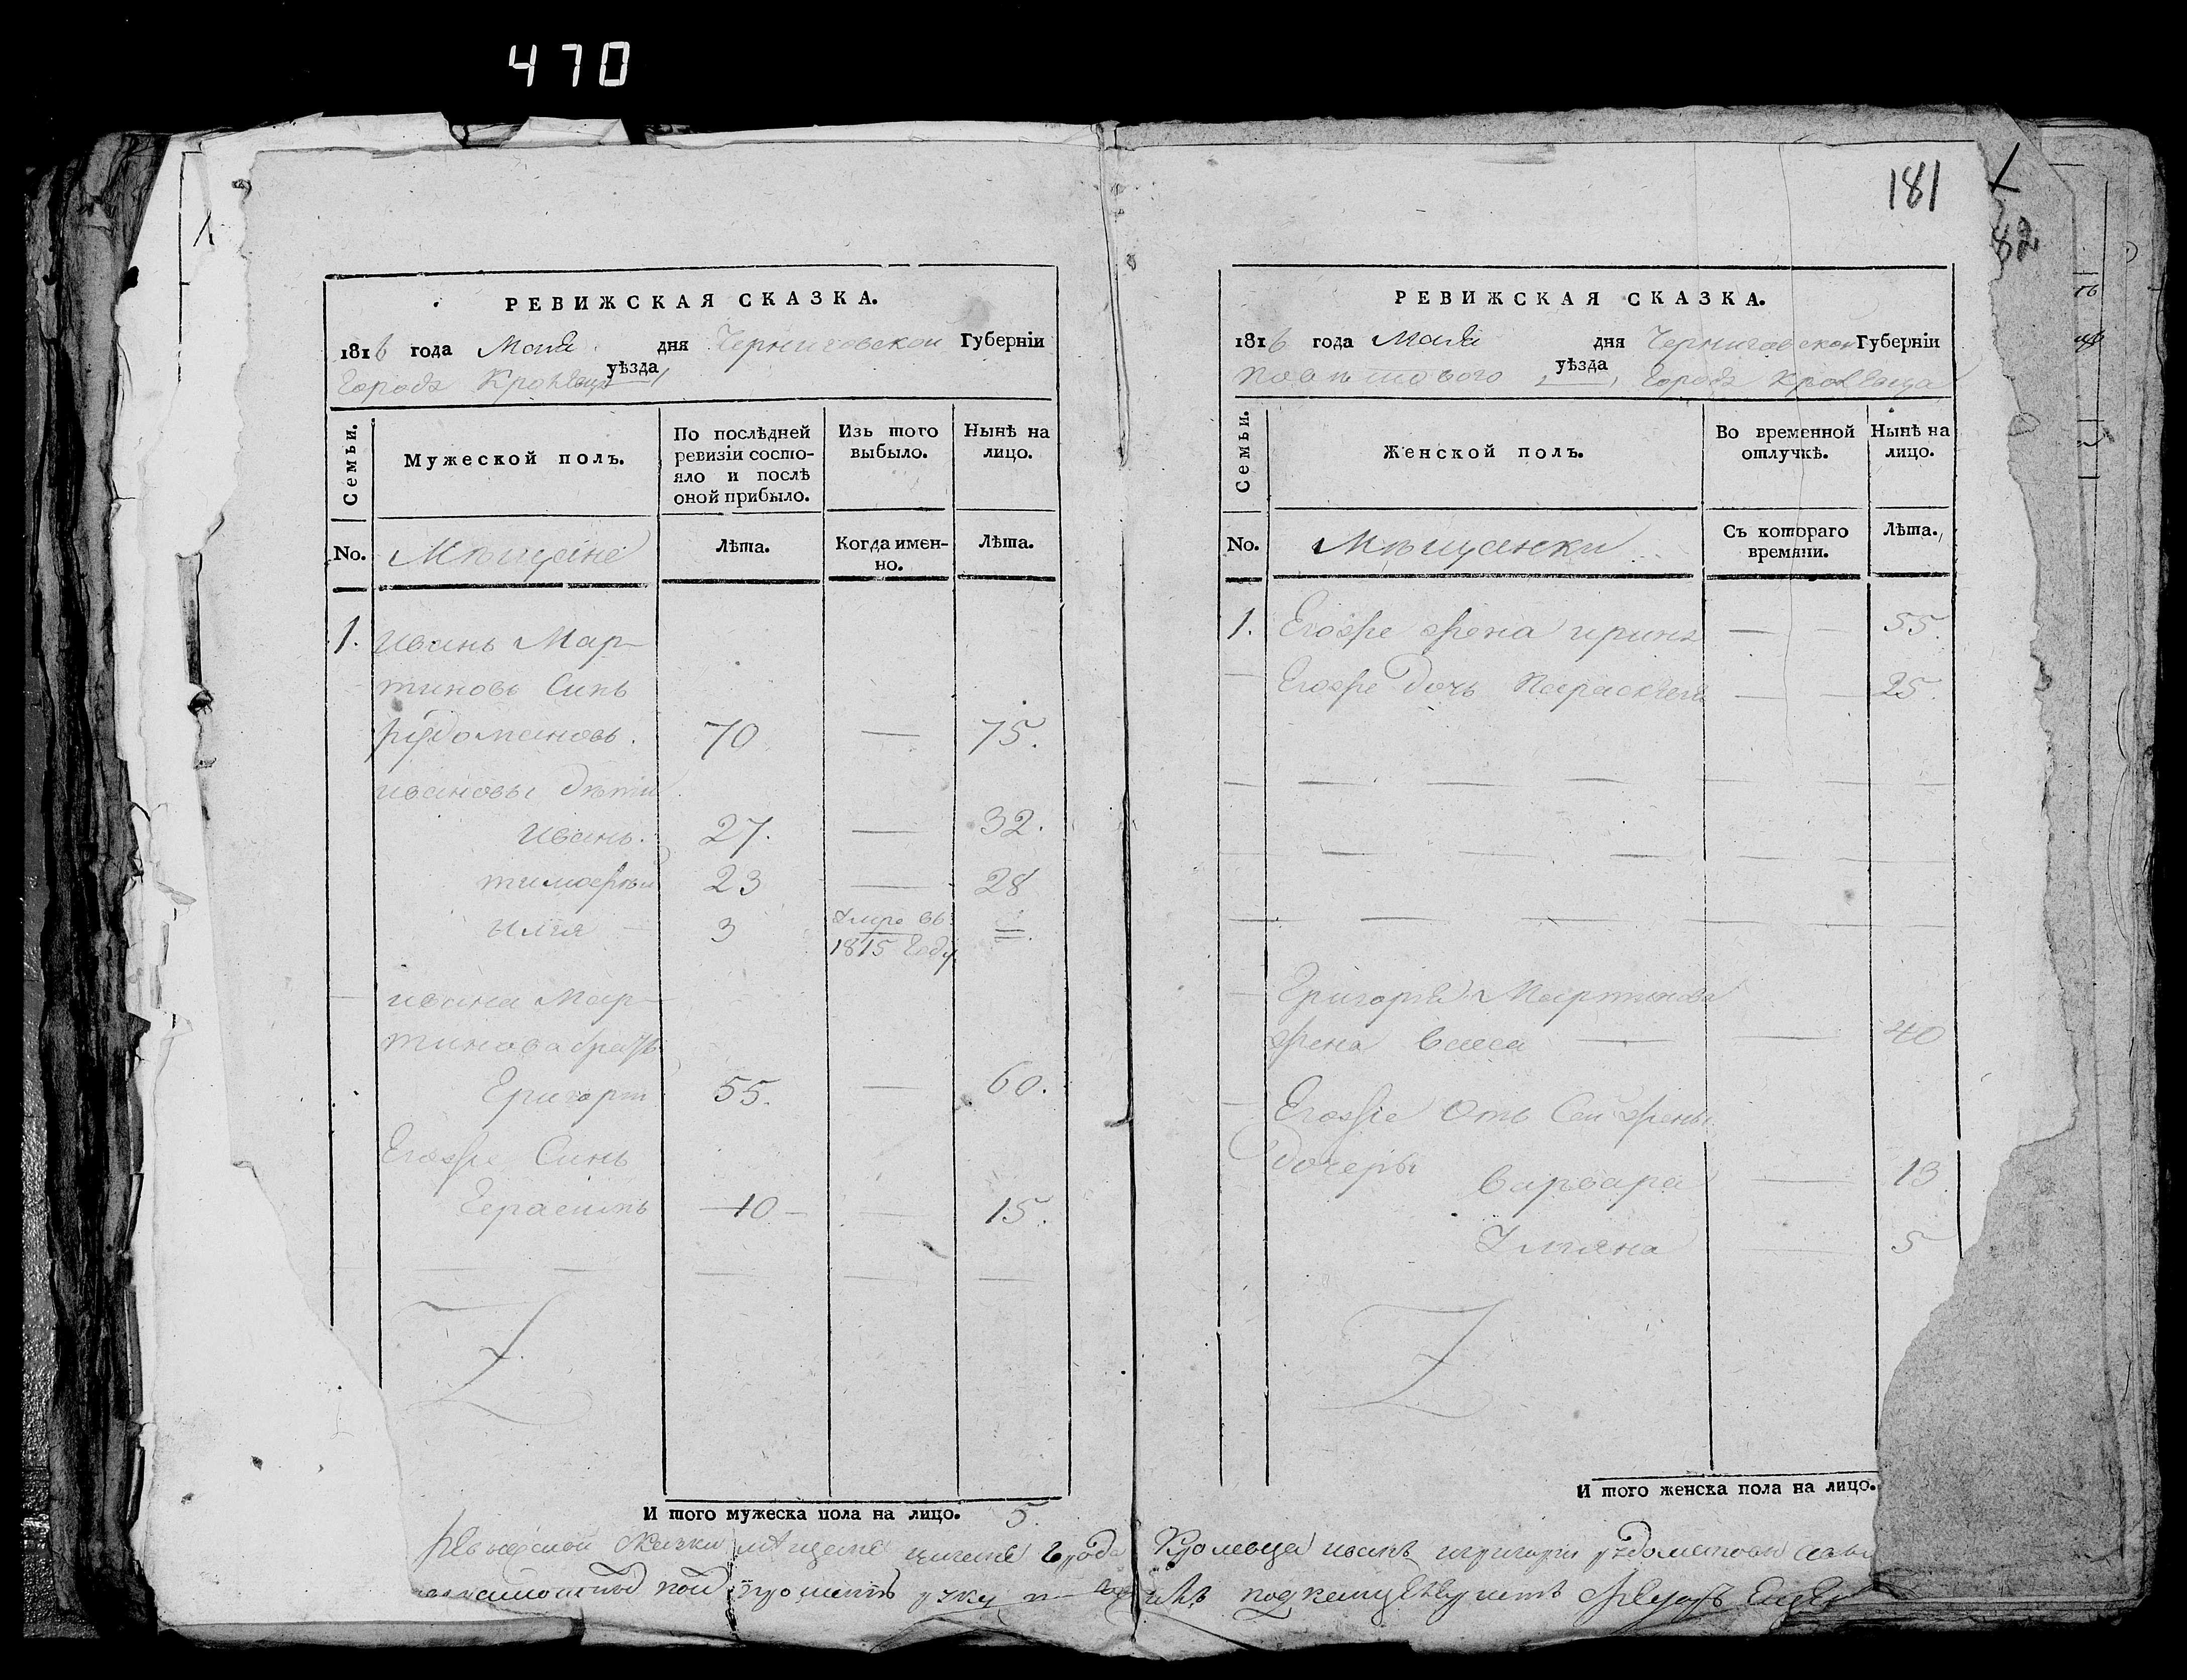 470
181
82
РЕВИЖСКАЯ СКАЗКА.
1816 года Маия дня Черниговской Губернїи
уѣзда
Города Кролевца
Семьи.
Мужеской полъ.
По послѣдней ревизїи состо-
яло и послѣ
оной прибыло.
Изъ того
выбыло.
Нынѣ на
лицо.
No.
Мѣщане
Лѣта.
Когда имен-
но.
Лѣта.
1. иванъ Мар-
тиновъ Синъ
рудомановъ. 70 — 75.
ивановы дѣти
иванъ. 27. — 32.
тимофѣй 23 — 28
илия 3 Умре въ
1815 Году
ивана Мар-
тинова братъ
Григорій 55. — 60.
Егоже Синъ
Герасимъ 10 — 15.
И того мужеска пола на лицо. 5.
РЕВИЖСКАЯ СКАЗКА.
1816 года Маия дня Черниговской Губернїи
уѣзда
Повѣтового Города Кролевца
Семьи.
Женской полъ.
Во временной
отлучкѣ.
Нынѣ на
лицо.
No.
Мѣщанки
Съ котораго
времяни.
Лѣта.
1. Егоже жена ирина — 55.
Егоже дочь Параскевия — 25.
Григория Мартинова
жена Васса — 40
Егоже Отъ Сей жены
дочеры
Варвара — 13
Улияна — 5
И того женска пола на лицо.
Ревижской сказки мѣщане Города Кролевца иванъ игригорий рудомановы